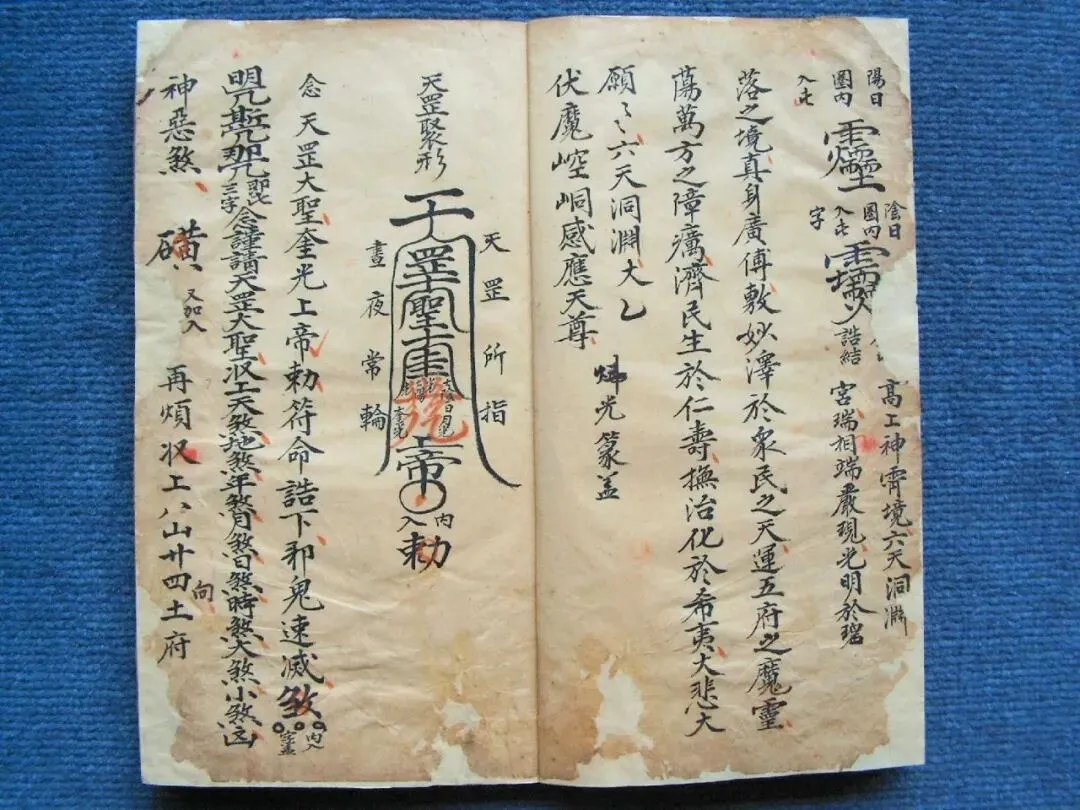 陽日
圈内
入此
陰日
圈内
入此
字
誥結
高上神霄境六天洞淵
宮瑞相端嚴現光明於瑤
落之境真身廣傳敷妙澤於衆民之天運五府之魔靈
蕩萬方之障癘濟民生於仁壽撫治化於希夷大悲大
願々六天洞淵大
伏魔崆峒感應天尊
光篆盖
天罡聚形
天罡所指
晝夜常輪
罡聖
上帝
内入
勅
念天罡大聖奎光上帝勅符命誥下邪鬼速滅煞
内入
念謹請天罡大聖収上天煞地煞年煞月煞日煞時煞大煞小煞凶
神惡煞
又加入
再煩収上八山廿四土府
向